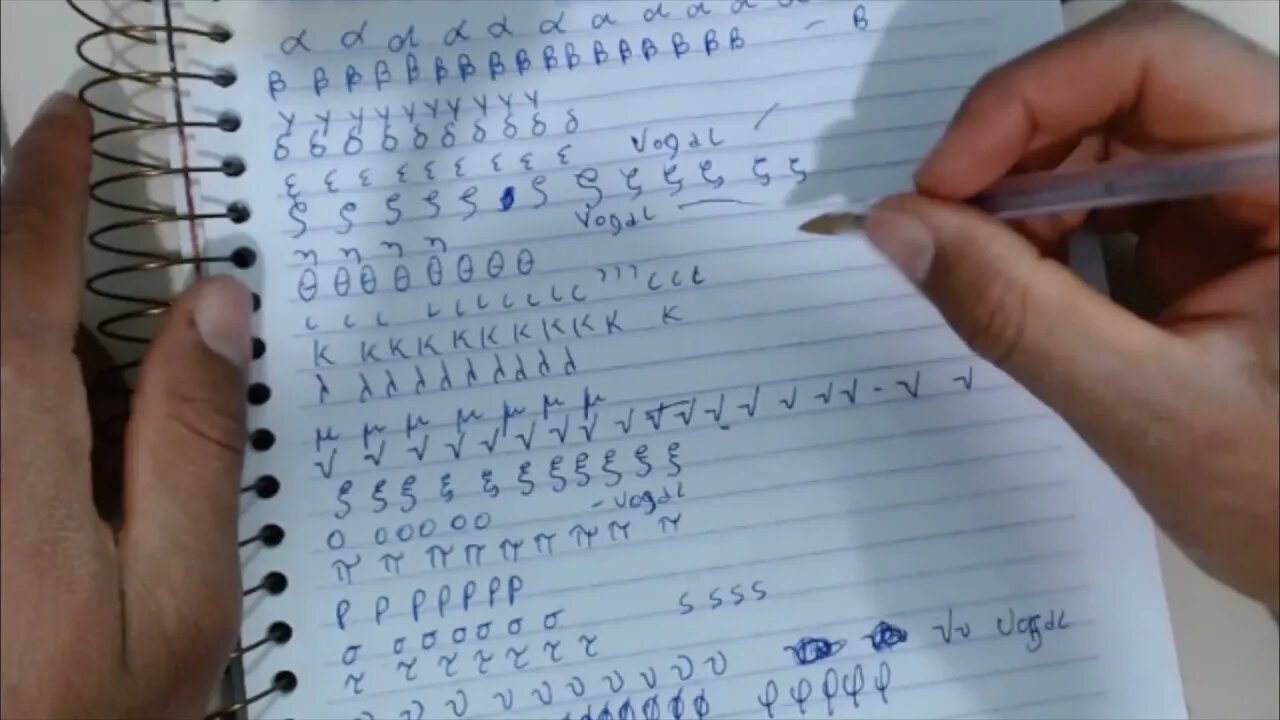 α α α α α α α α α α α
β β β β β β β β β β β β β β β β β – B
γ γ γ γ γ γ γ γ γ γ
δ δ δ δ δ δ δ δ δ δ
ε ε ε ε ε ε ε ε ε Vogal /
ζ ζ ζ ζ ζ ζ ζ ζ ζ ζ ζ ζ
η η η η Vogal —
θ θ θ θ θ θ θ θ
ι ι ι ι ι ι ι ι ι ι ι ι ι ι ι ι
κ κ κ κ κ κ κ κ κ κ κ
λ λ λ λ λ λ λ λ λ λ
μ μ μ μ μ μ μ
ν ν ν ν ν ν ν ν ν ν ν ν ν ν ν - ν ν
ξ ξ ξ ξ ξ ξ ξ ξ ξ ξ ξ
ο ο ο ο ο ο – Vogal
π π π π π π π π π
ρ ρ ρ ρ ρ ρ ρ
σ σ σ σ σ σ σ ς ς ς ς
τ τ τ τ τ τ τ
υ υ υ υ υ υ υ υ υ υ υ Vogal
φ φ φ φ φ φ φ φ φ φ